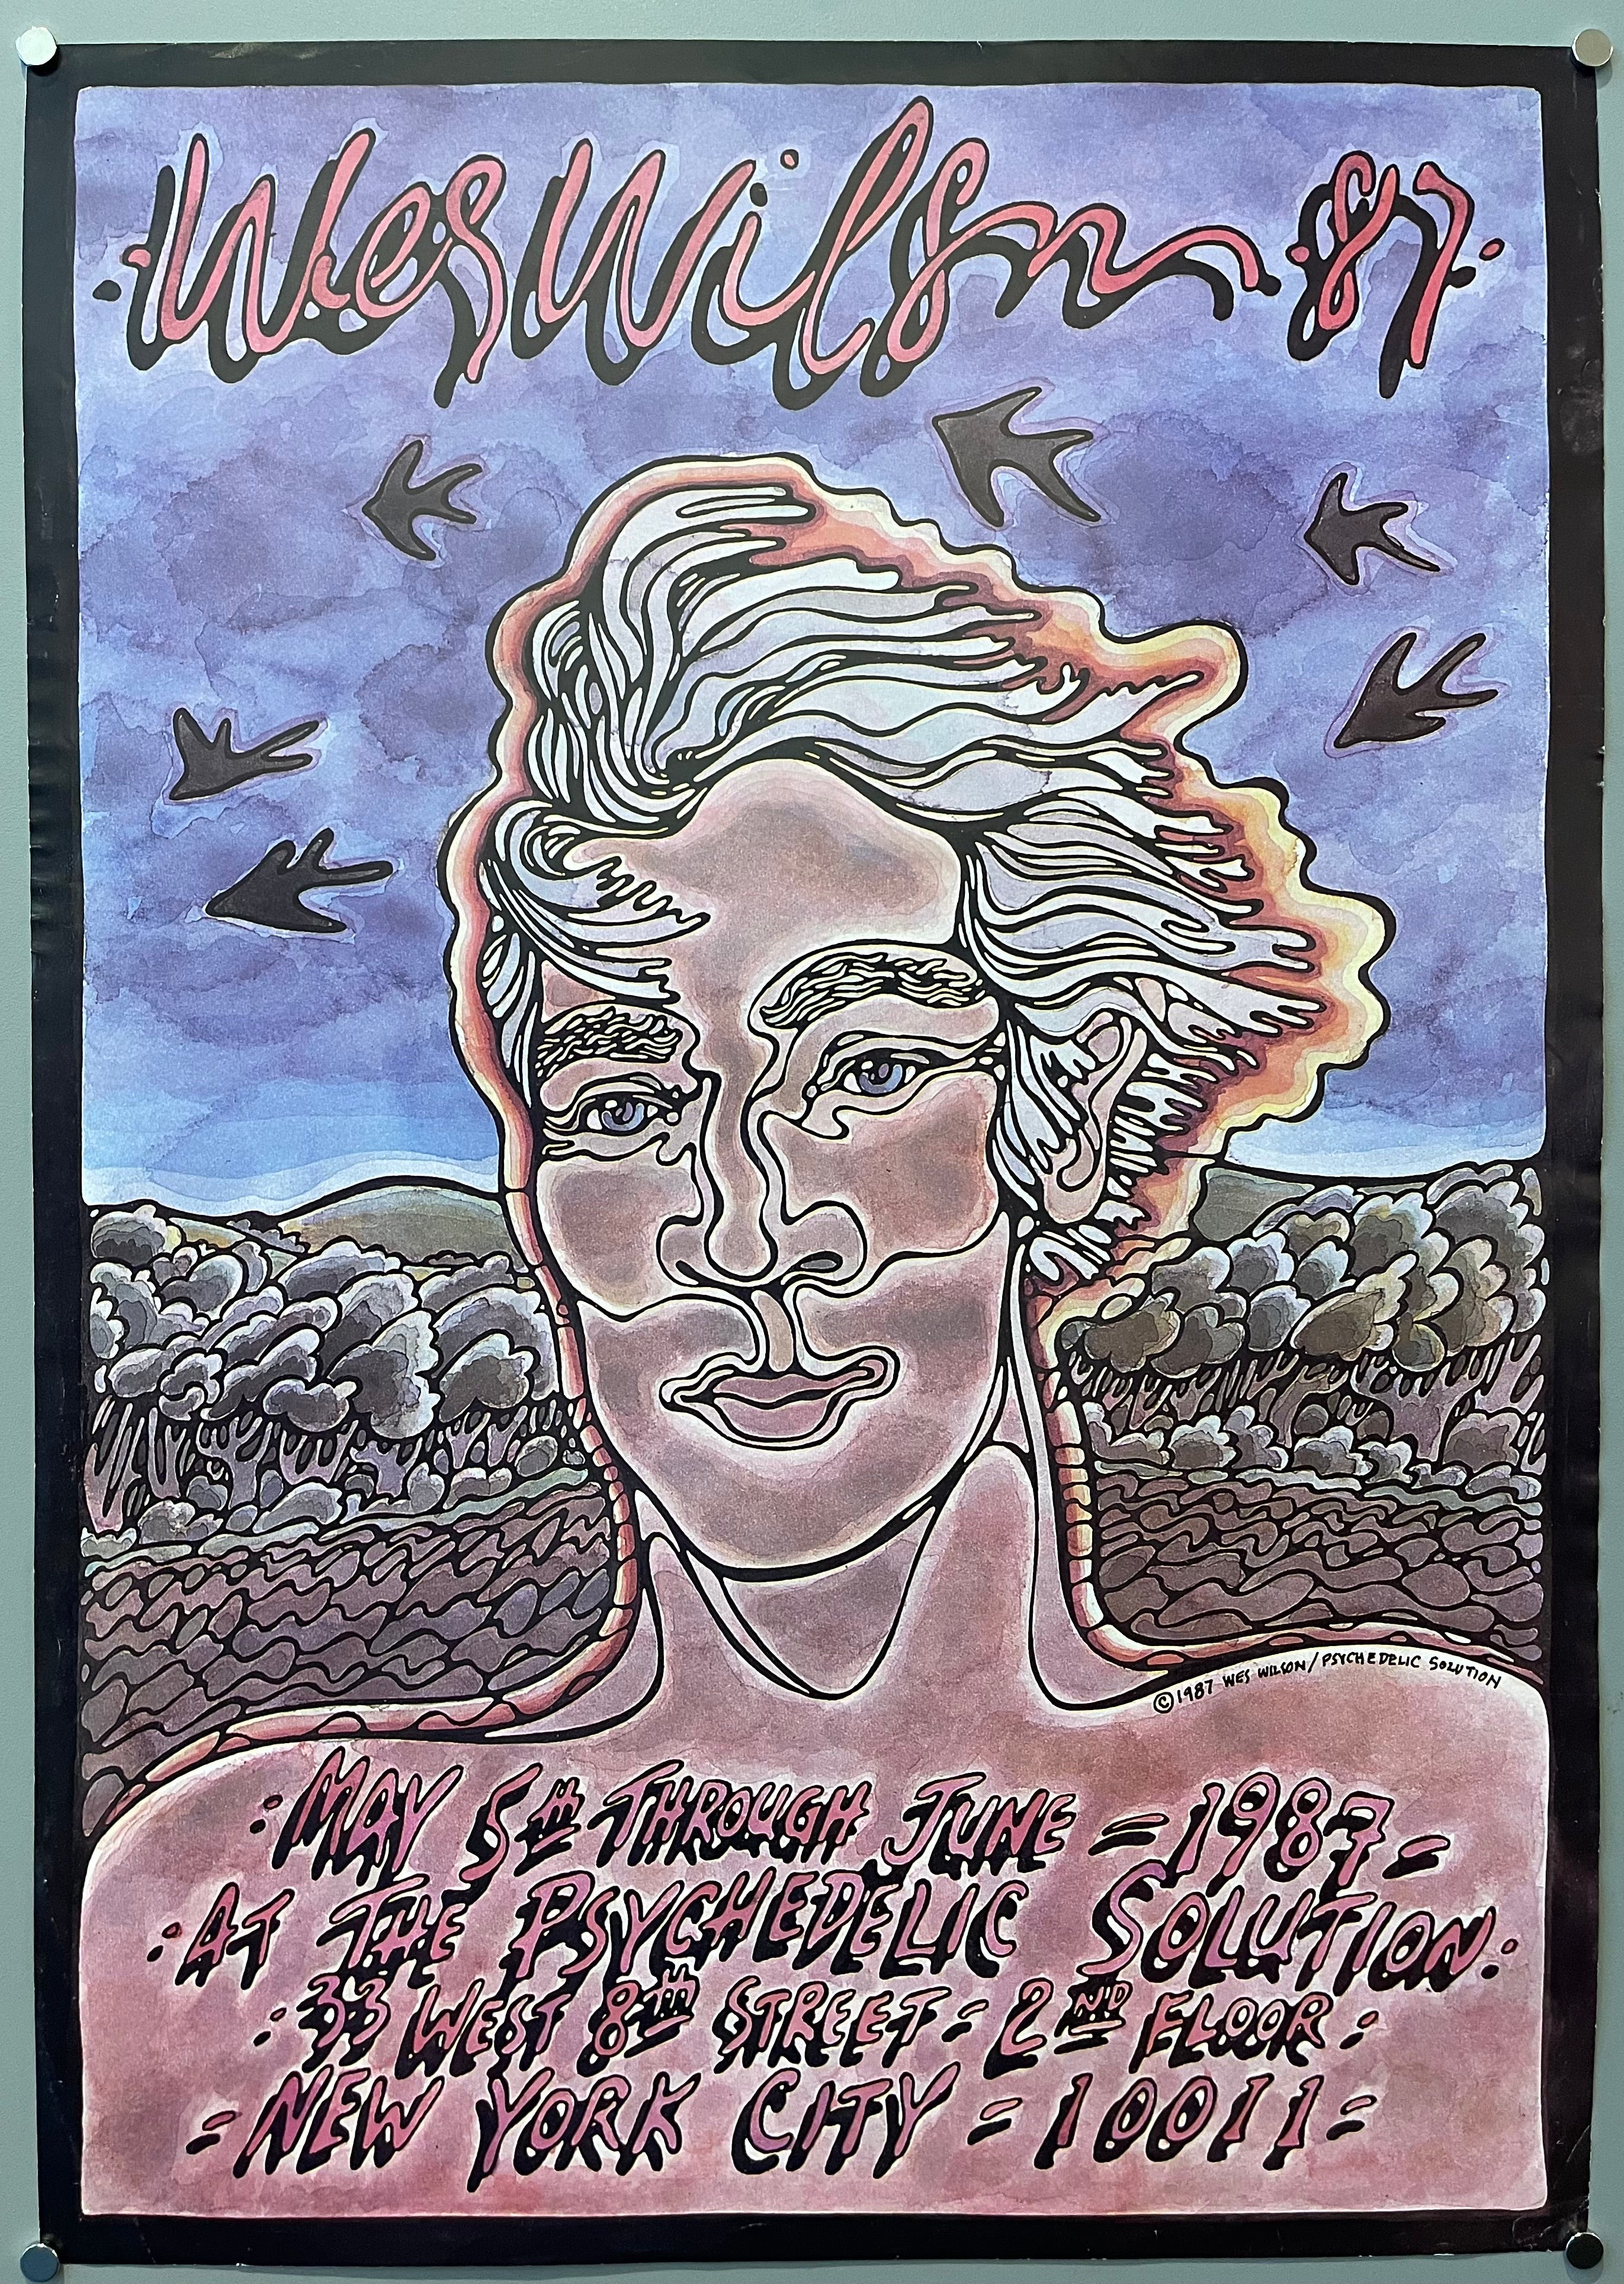 ·Wes Wilson·87·
© 1987 WES WILSON/PSYCHEDELIC SOLUTION
:MAY 5TH THROUGH JUNE = 1987=
:AT THE PSYCHEDELIC SOLUTION:
:33 WEST 8TH STREET = 2ND FLOOR:
=NEW YORK CITY = 10011=